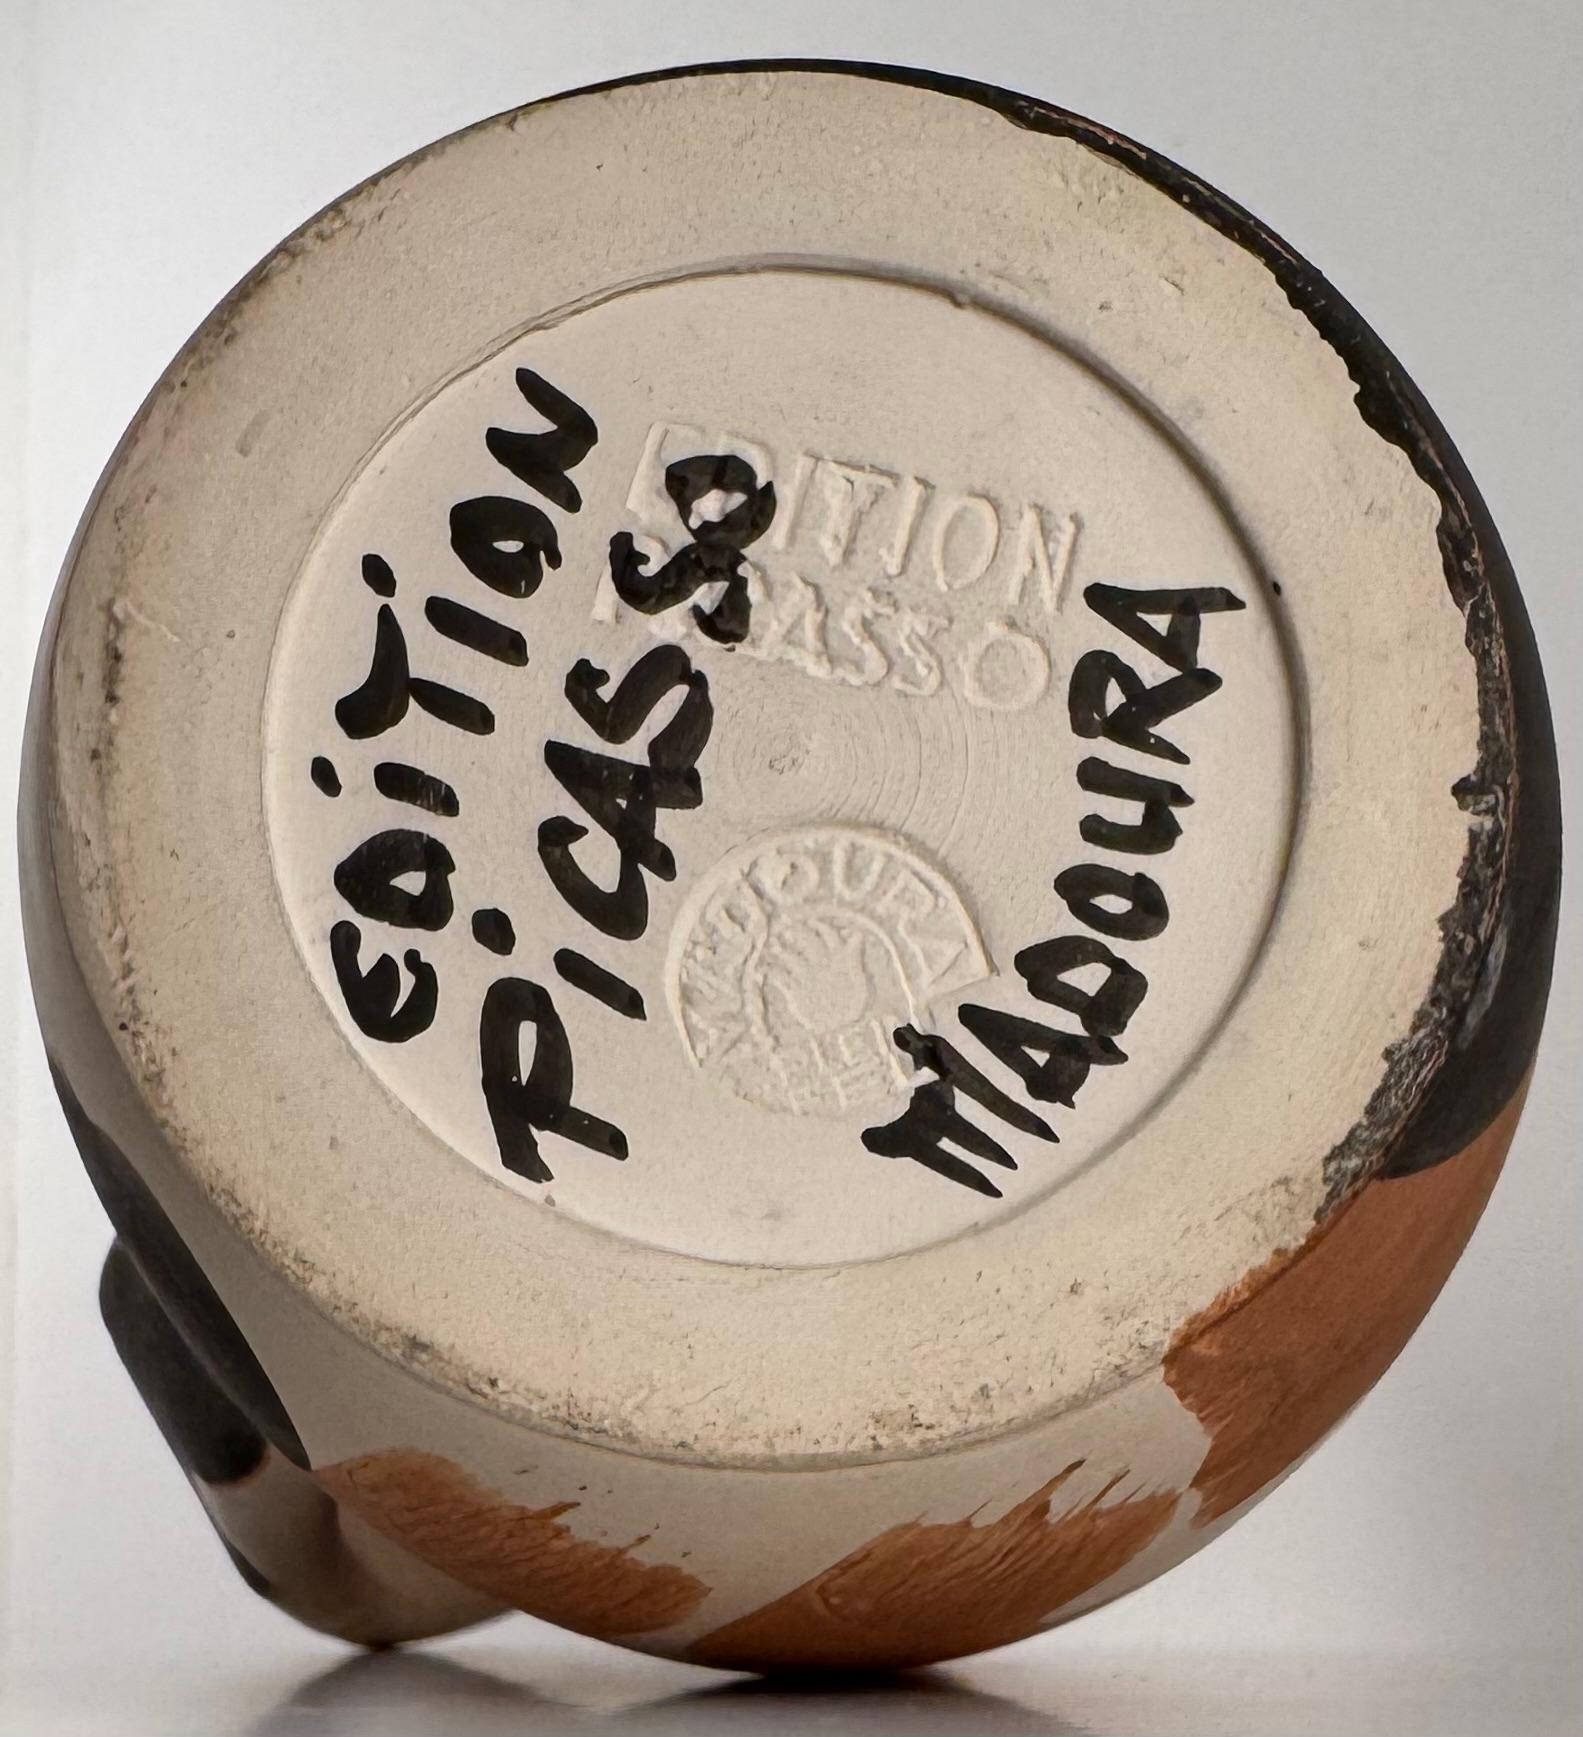 EDiTiON
PiCASSO
MADOURA
EDITION
PICASSO
MADOURA